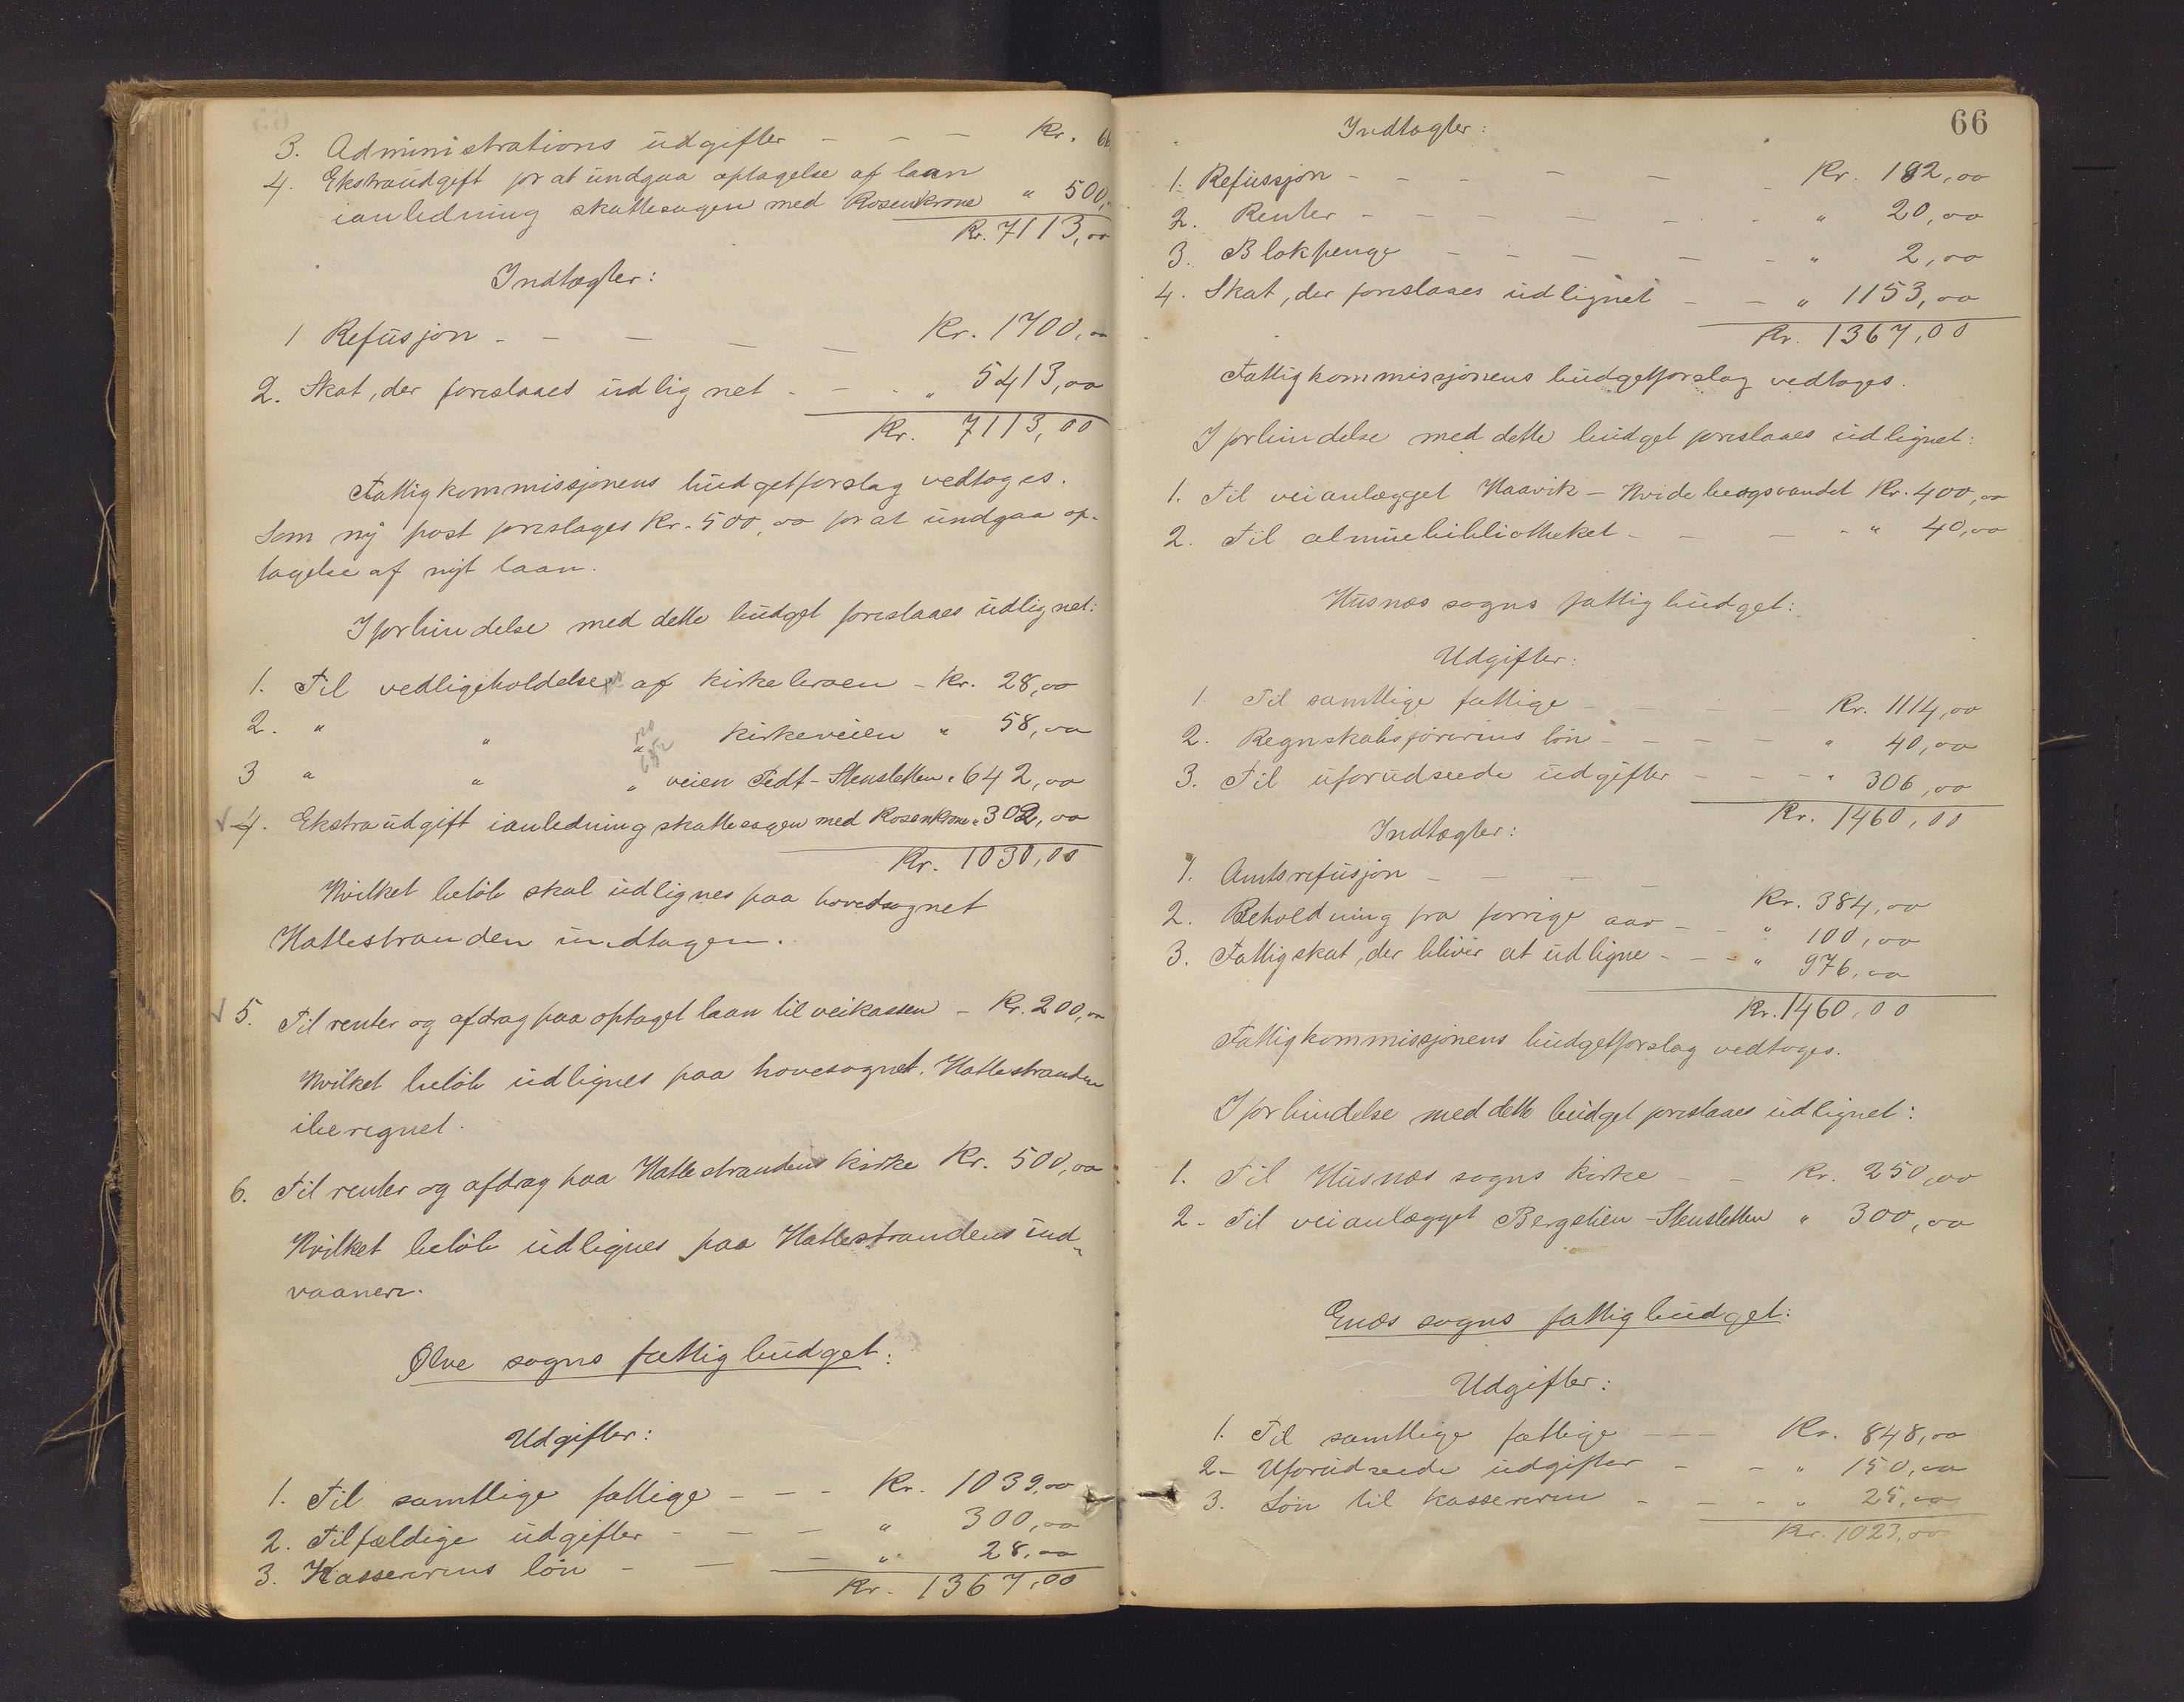 3. Administrations udgifter – – – Kr. 66
4. Ekstraudgift for at undgaa optagelse af laan
ianledning skattesagen med Rosenkrone " 500,
Kr. 7113,00
Indtægter:
1 Refusjon - - - - - Kr. 1700,00
2. Skat, der foreslaaes udlignet - - - " 5413,00
Kr. 7113,00
Fattigkommissjonens budgetforslag vedtoges.
Som ny post foreslages Kr. 500,00 for at undgaa op-
tagelse af nyt laan.
I forbindelse med dette budget foreslaaes udlignet:
1. Til vedligeholdelse af kirkebroen - Kr. 28,00
2. " " " kirkeveien " 58,00
3 " " " veien Tedt - Stensletten " 642,00
4. Ekstraudgift ianledning skattesagen med Rosenkrone " 302,00
Kr. 1030,00
Hvilket beløb skal udlignes paa hovedsognet
Hattestranden undtagen.
5. Til renter og afdrag paa optaget laan til veikassen - Kr. 200,00
Hvilket beløb udlignes paa hovesognet. Hattestranden
iberegnet.
6. Til renter og afdrag paa Hattestrandens kirke Kr. 500,00
Hvilket beløb udlignes paa Hattestrandens ind-
vaanere.
Ølve sogns fattigbudget:
Udgifter:
1. Til samtlige fattige - - - Kr. 1039,00
2. Tilfældige udgifter - - - " 300,00
3. Kassererens løn - - - " 28,00
Kr. 1367,00
66
Indtægter:
1. Refussjon - - - - - Kr. 192,00
2. Renter - - - - - - " 20,00
3. Blokpenge - - - - - " 2,00
4. Skat, der foreslaaes udlignet - - " 1153,00
Kr. 1367,00
Fattigkommissjonens budgetforslag vedtoges.
I forbindelse med dette budget foreslaaes udlignet:
1. Til veianlægget Haavik - Hvidebergsvandet Kr. 400,00
2. Til almuebibliotheket - - - - " 40,00
Husnæs sogns fattigbudget:
Udgifter:
1. Til samtlige fattige - - - - Kr. 1114,00
2. Regnskabsførerens løn - - - - " 40,00
3. Til uforudseede udgifter - - - " 306,00
Kr. 1460,00
Indtægter:
1. Amtsrefusjon - - - - Kr. 384,00
2. Beholdning fra forrige aar - - " 100,00
3. Fattigskat, der bliver at udligne - - - " 976,00
Kr. 1460,00
Fattigkommissjonens budgetforslag vedtoges.
I forbindelse med dette budget foreslaaes udlignet:
1. Til Husnæs sogns kirke - - Kr. 250,00
2 - Til veianlægget Bergstien - Stensletten " 300,00
Enæs sogns fattigbudget:
Udgifter:
1. Til samtlige fattige - - - Kr. 848,00
2 - Uforudseede udgifter - - " 150,00
3. Løn til kassereren - - - " 25,00
Kr. 1023,00